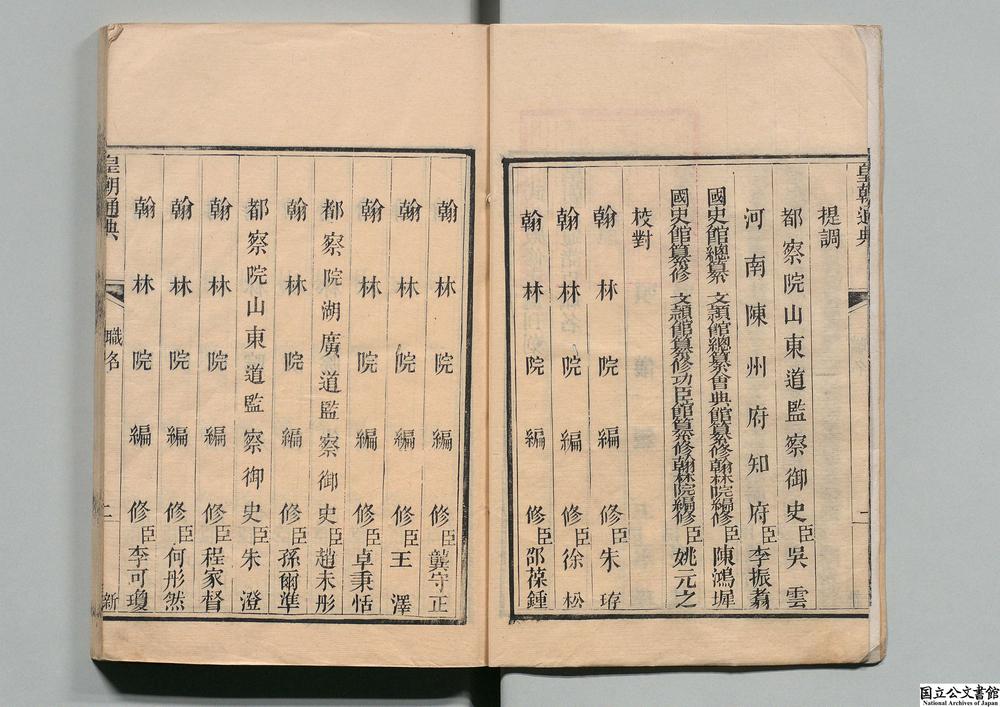 皇朝通典
二
提調
都察院山東道監察御史臣吳雲
河南陳州府知府臣李振翥
國史館總纂 文穎館總纂會典館纂修翰林院編修臣陳鴻墀
國史館纂修 文穎館纂修功臣館纂修翰林院編修臣姚元之
校對
翰林院編修臣朱珔
翰林院編修臣徐松
翰林院編修臣邵葆鍾
翰林院編修臣龔守正
翰林院編修臣王澤
翰林院編修臣卓秉恬
都察院湖廣道監察御史臣趙未彤
翰林院編修臣孫爾準
都察院山東道監察御史臣朱澄
翰林院編修臣程家督
翰林院編修臣何彤然
翰林院編修臣李可瓊
皇朝通典
職名
二
新
国立公文書館
National Archives of Japan